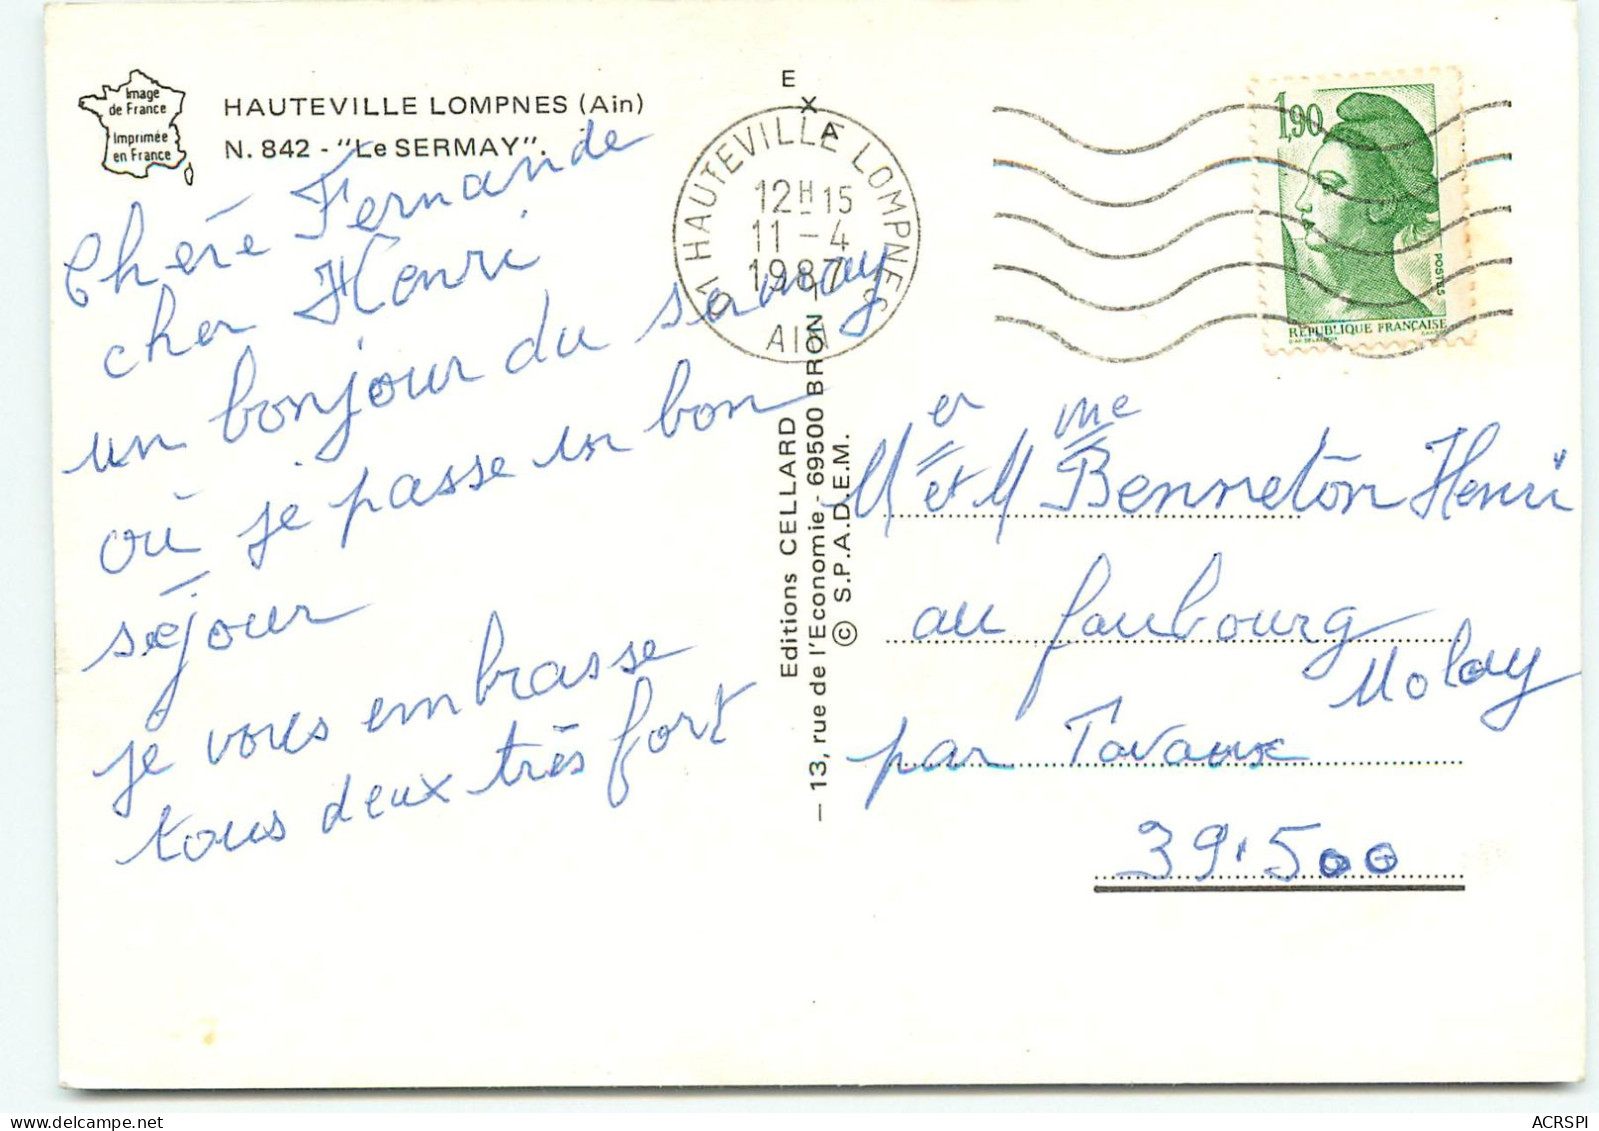 Image
de France
Imprimée
en France
HAUTEVILLE LOMPNES (Ain)
N. 842 - "Le SERMAY".
Chère Fernande
cher Henri
un bonjour du sermay
où je passe un bon
séjour
je vous embrasse
tous deux très fort
EXA
Editions CELLARD
— 13, rue de l'Economie - 69500 BRON
© S.P.A.D.E.M.
01 HAUTEVILLE LOMPNES
12H15
11-4
1987
AIN
1,90
POSTES
RÉPUBLIQUE FRANÇAISE
Mer et Mme Benneton Henri
au faubourg
Molay
par Tavaux
39.500
ACRSPI